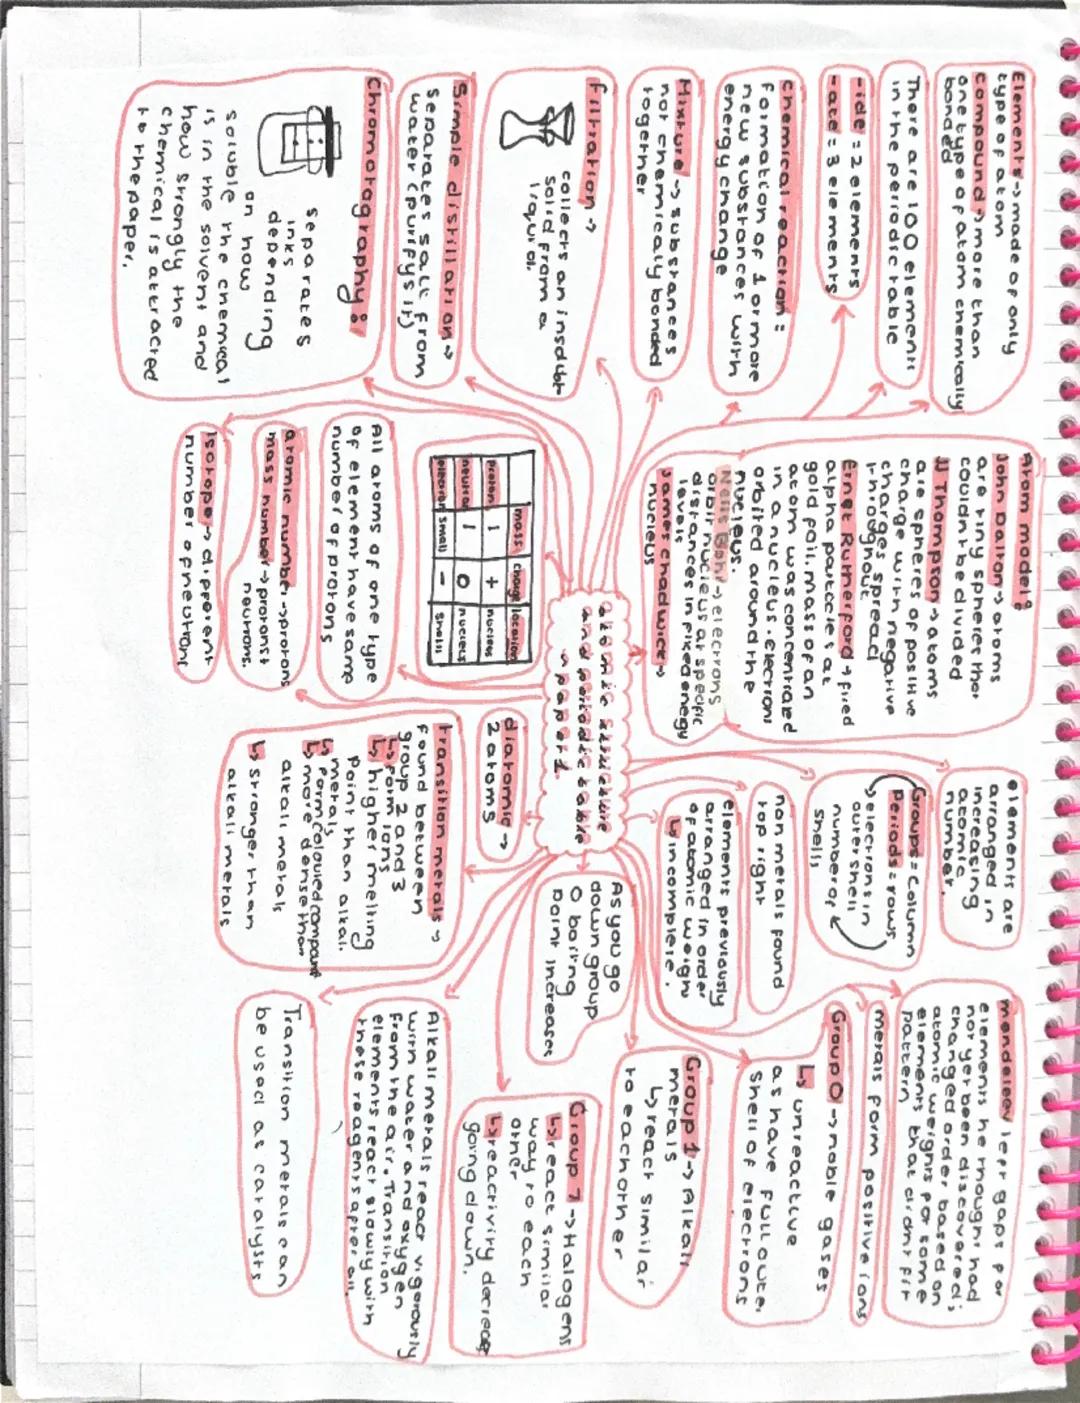 Elements → made of only
type of atom
compound → more than
one type of atom chemically
bonded
There are 100 elements
in the periodic table
-ide = 2 elements
-ate = 3 elements
chemical reaction =
formation of 1 or more
new substances with
energy change
Mixture → substances
not chemically bonded
together
filtration →
collects an insolubl
solid from a
liquid.
Simple distillation →
separates salt from
water (purifys it)
Chromotography:
separates
inks
depending
on how
soluble the chemical
is in the solvent and
how strongly the
chemical is atteracted
to the paper.
Atom models
John Dalton → atoms
are tiny spheres that
couldnt be divided
JJ Thompson → atoms
are spheres of positive
charge with negative
charges spread
throughout
Ernest Rutherford → fired
alpha particles at
gold foil. mass of an
atom was concentrated
in a nucleus. electrons
orbited around the
nucleus.
Neils Bohr → electrons
orbit nucleus at specific
distances in fixed energy
levels
James chadwick →
nucleus
mass charge location
proton 1 + nucleus
neutron 1 0 nucleus
electron small - shells
All atoms of one type
of element have same
number of protons
atomic number → protons
mass number → protons +
neutrons.
Isotope → different
number of neutrons
atomic structure
and periodic table
paper 1.
diatomic →
2 atoms
elements are
arranged in
increasing
atomic
number.
Groups = column
Periods = rows
electrons in
outershell
number of
shells
non metals found
top right
elements previously
arranged in order
of atomic weight
↳ incomplete.
As you go
down group
0 boiling
point increases
transition metals →
found between
group 2 and 3
↳ form ions
↳ higher melting
point than alkali
metals
↳ form coloured compound
↳ more dense than
alkali metals
↳ stronger than
alkali metals
mendeleev left gaps for
elements he thought had
not yet been discovered;
changed order based on
atomic weights for some
elements that didnt fit
pattern
metals form positive ions
Group 0 → noble gases
↳ unreactive
as have full outer
shell of electrons
Group 1 → Alkali
metals
↳ react similar
to eachother
Group 7 → Halogens
↳ react similar
way to each
other
↳ reactivity decrease
going down.
Alkali metals react vigorously
with water and oxygen
from the air. Transition
elements react slowly with
these reagents after all.
Transition metals can
be used as catalysts